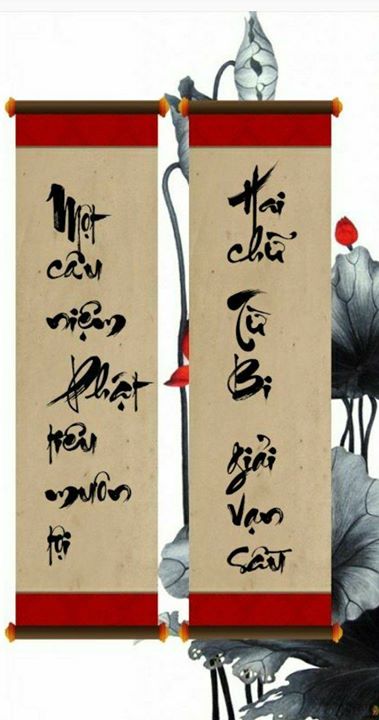 Một
câu
niệm
Phật
tiêu
muôn
tội
Hai
chữ
Từ
Bi
giải
vạn
sầu